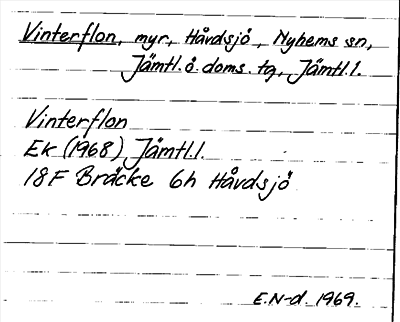 Vinterflon, myr, Håvdsjö, Nyhems sn,
Jämtl. ö. doms. tg, Jämtl. l.
Vinterflon
Ek (1968) Jämtl. l.
18F Bräcke 6h Håvdsjö
E.N-d. 1969.